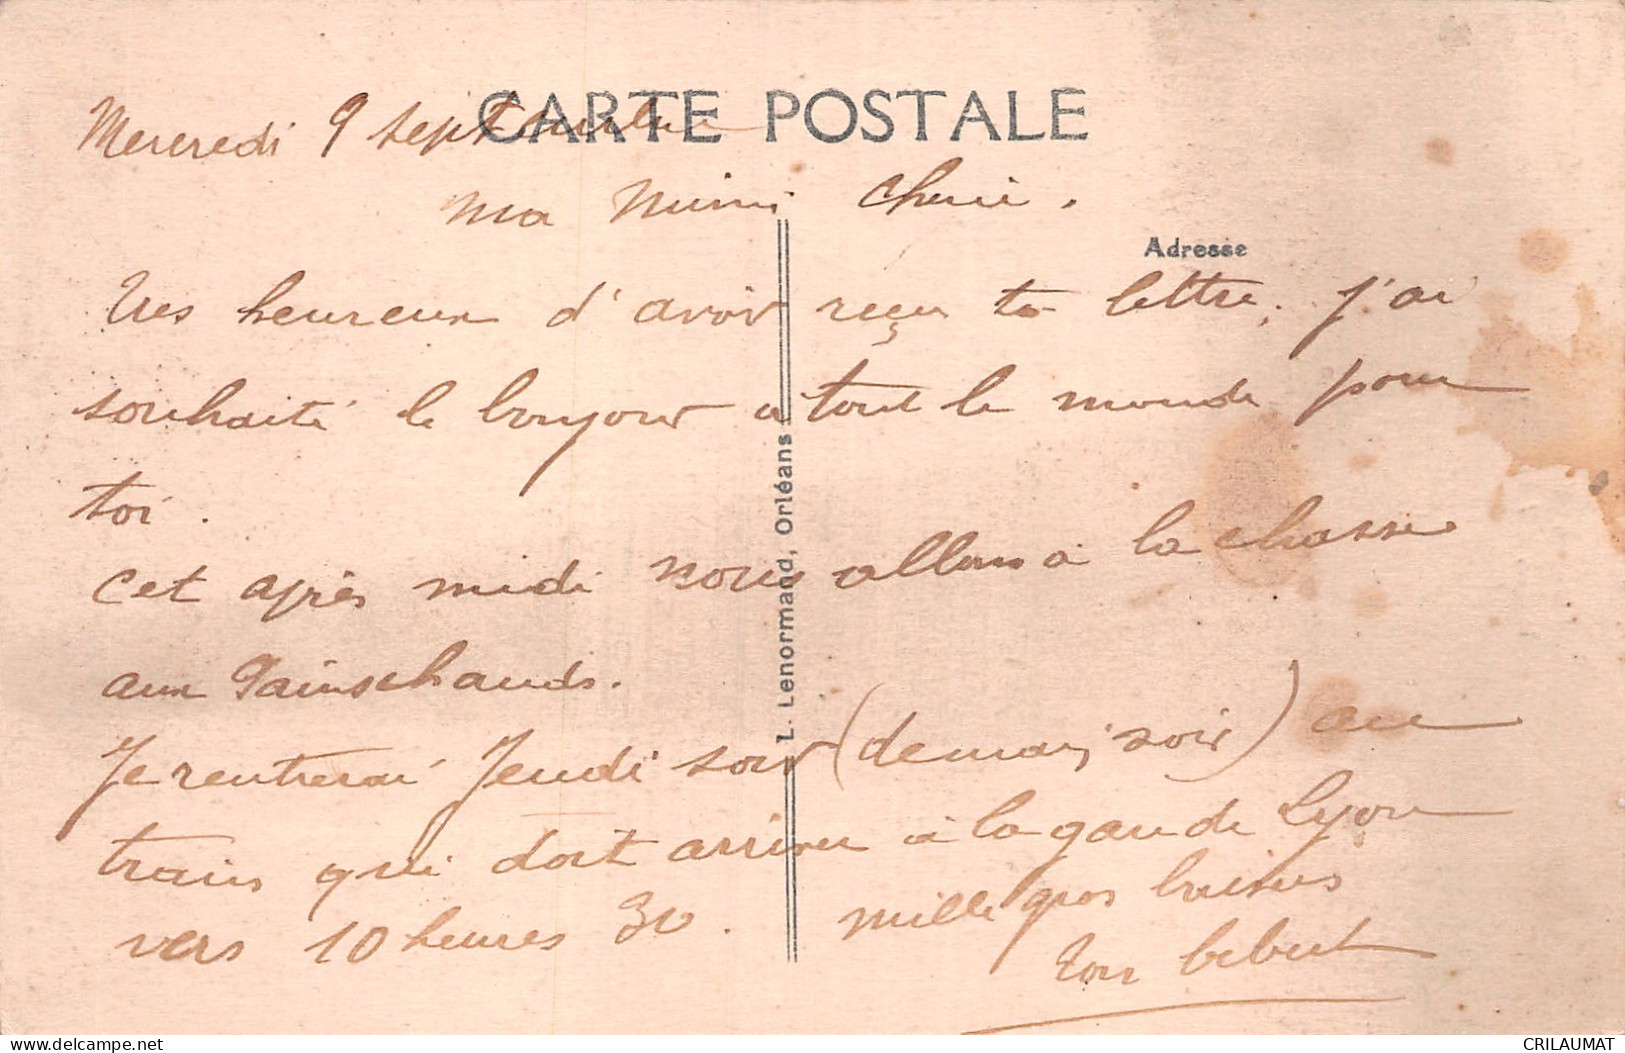 CARTE POSTALE
Mercredi 9 septembre
Ma Mimi Cherie.
Adresse
Tres heureux d'avoir reçu ta lettre, j'ai
souhaité le bonjour a tout le monde pour
toi.
Cet après midi nous allons a la chasse
aux
Je rentrerai Jeudi soir (demain soir) au
train qui doit arriver à la gare de Lyon
vers 10 heures 30. mille gros baisers
Ton bebert
L. Lenormand, Orléans
delcampe.net
CRILAUMAT